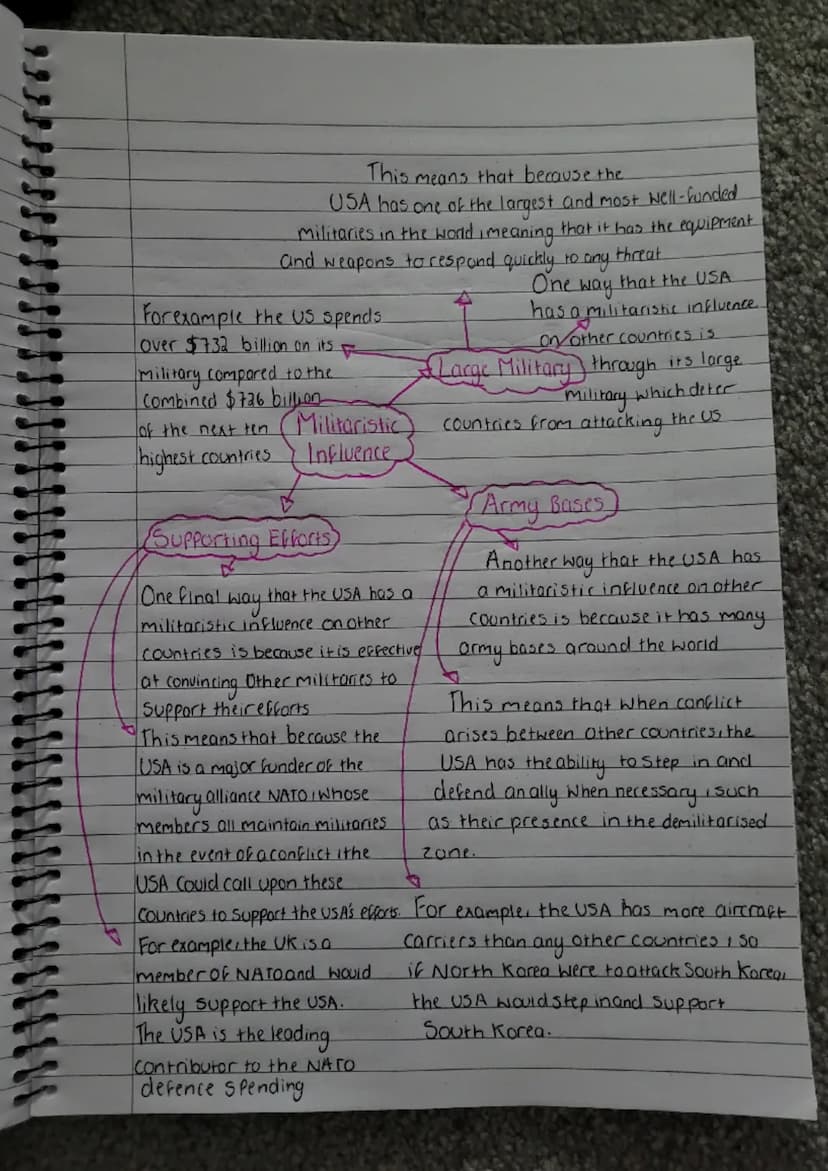 This means that because the
USA has one of the largest and most well-funded
militaries in the world, meaning that it has the equipment
and weapons to respond quickly to any threat
One way that the USA
has a militaristic influence
on other countries is
through its large
military which deter
countries from attacking the US
Large Military
For example the US spends
over $732 billion on its
military compared to the
combined $726 billion
of the next ten
highest countries
Militaristic
Influence
Supporting Efforts
One final way that the USA has a
militaristic influence on other
countries is because it is effective
at convincing other militaries to
support their efforts
This means that because the
USA is a major funder of the
military alliance NATO, whose
members all maintain militaries
in the event of a conflict, the
USA could call upon these
countries to support the USA's efforts.
For example, the UK is a
member of NATO and would
likely support the USA.
The USA is the leading
contributor to the NATO
defence spending
Army Bases
Another way that the USA has
a militaristic influence on other
countries is because it has many
army bases around the world
This means that when conflict
arises between other countries, the
USA has the ability to step in and
defend an ally when necessary, such
as their presence in the demilitarised
zone.
For example, the USA has more aircraft
carriers than any other countries, so
if North Korea were to attack South Korea,
the USA would step in and support
South Korea.